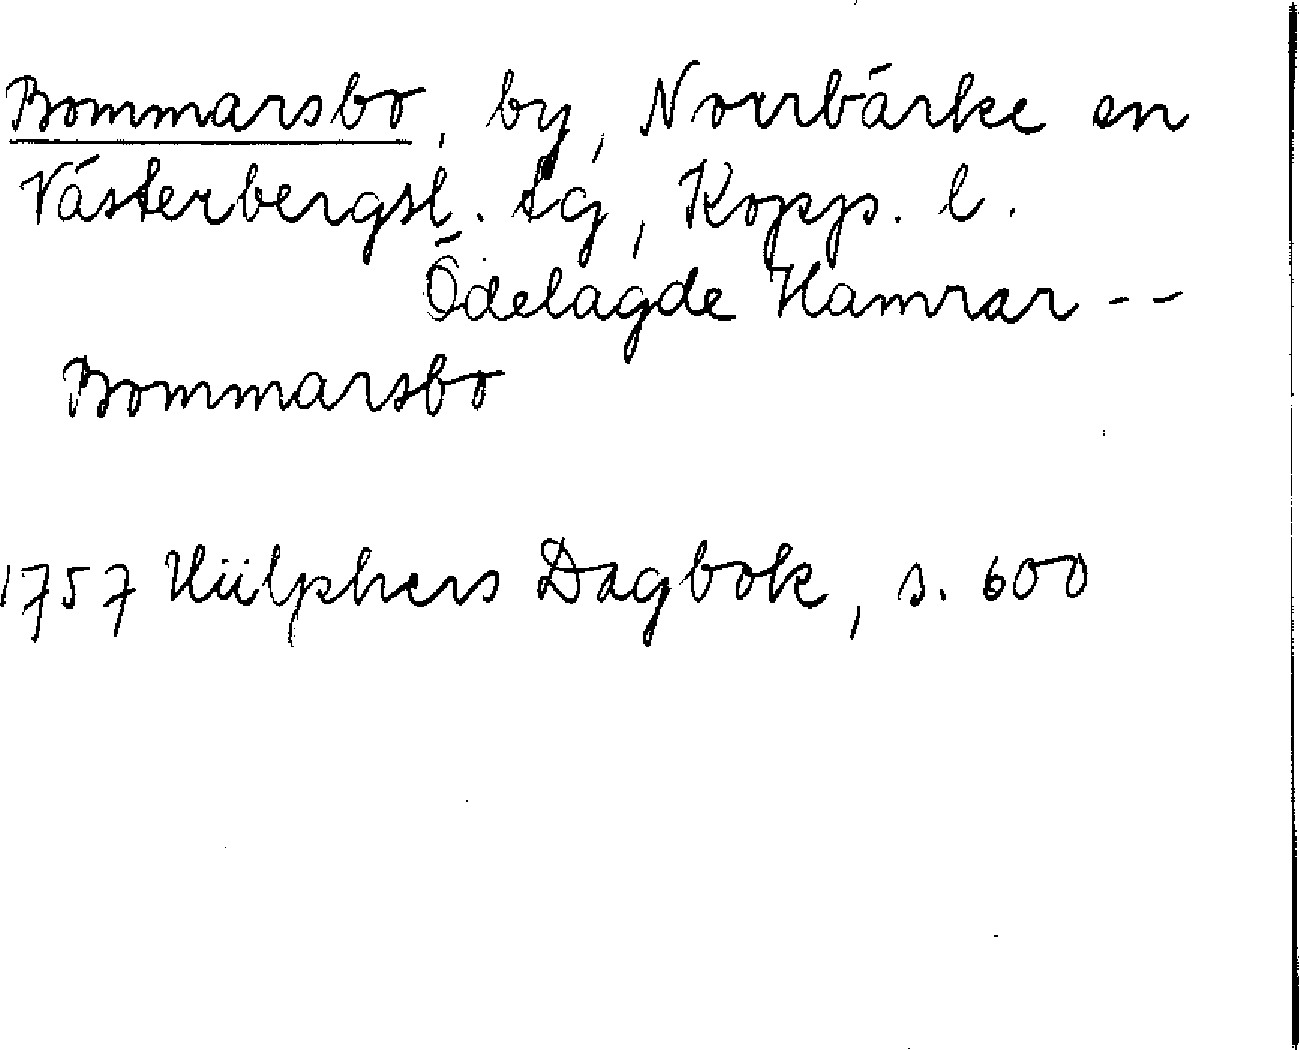 Bommarsbo, by, Norrbärke sn
Västerbergsl. tg, Kopp. l.
Ödelagde Hamrar --
Bommarsbo
1757 Hülphers Dagbok, s. 600